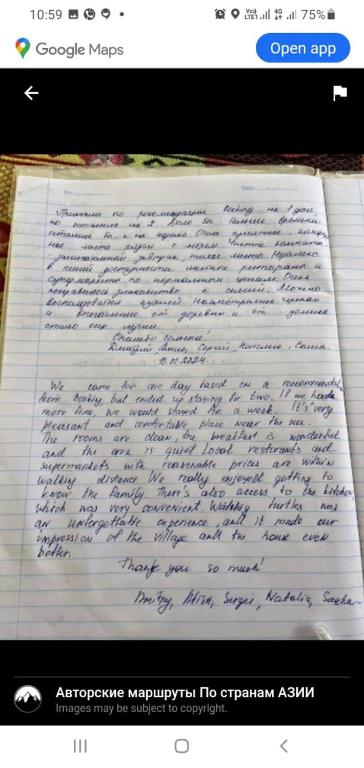 10:59
75%
Google Maps
Open app
Приехали по рекомендации Booking на 1 день
но остались на 2.
место рядом с морем. Чистые комнаты
завтрак, тихое место. Недалеко
в пешей доступности местные рестораны и
супермаркет по нормальным ценам. Очень
понравилось знакомство с семьёй. Можно
воспользоваться кухней
и впечатление от деревни и от домика
стало ещё лучше.
Спасибо большое!
Дмитрий, Алина, Сергей, Наталья, Саша.
2024
We came for one day based on a recommendation
from booking but ended up staying for two. If we had
more time, we would stayed for a week. It's very
pleasant and comfortable, place near the sea.
The rooms are clean, the breakfast is wonderful
and the area is quiet. Local restorants and
supermarkets with reasonable prices are within
walking distance. We really enjoyed getting to
know the family. There's also access to the kitchen,
which was very convenient. Watching turtles was
an unforgettable experience, and it made our
impression of the village and the house even
better.
Thank you so much!
Dmitry, Alina, Sergei, Natalia, Sasha
Авторские маршруты По странам АЗИИ
Images may be subject to copyright.